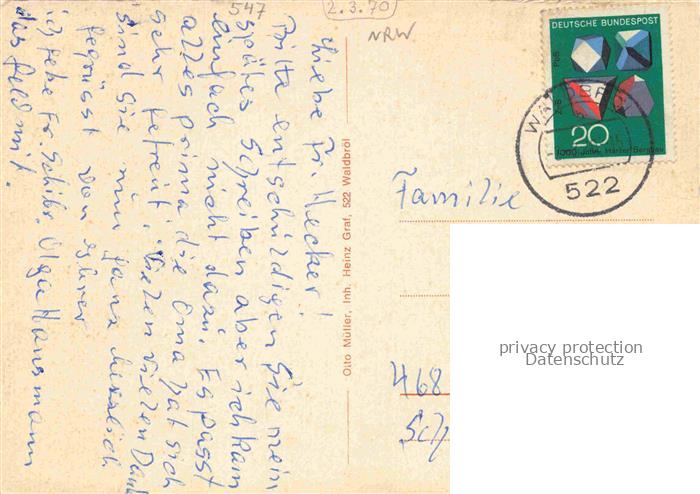 547
2.3.70
NRW
DEUTSCHE BUNDESPOST
20
1000 Jahre Harzer Bergbau
WALDBRÖL
522
Liebe Fr. Hecker!
Bitte entschuldigen Sie mein
spätes Schreiben aber ich kam
einfach nicht dazu. Es passt
alles prima die Oma hat sich
sehr gefreut. Vielen vielen Dank
sind Sie nun ganz herzlich
gegrüsst von Ihrer
Olga Hansmann
ich gebe Fr. das Geld mit.
Otto Müller, Inh. Heinz Graf, 522 Waldbröl
Familie
468
Sch
privacy protection
Datenschutz